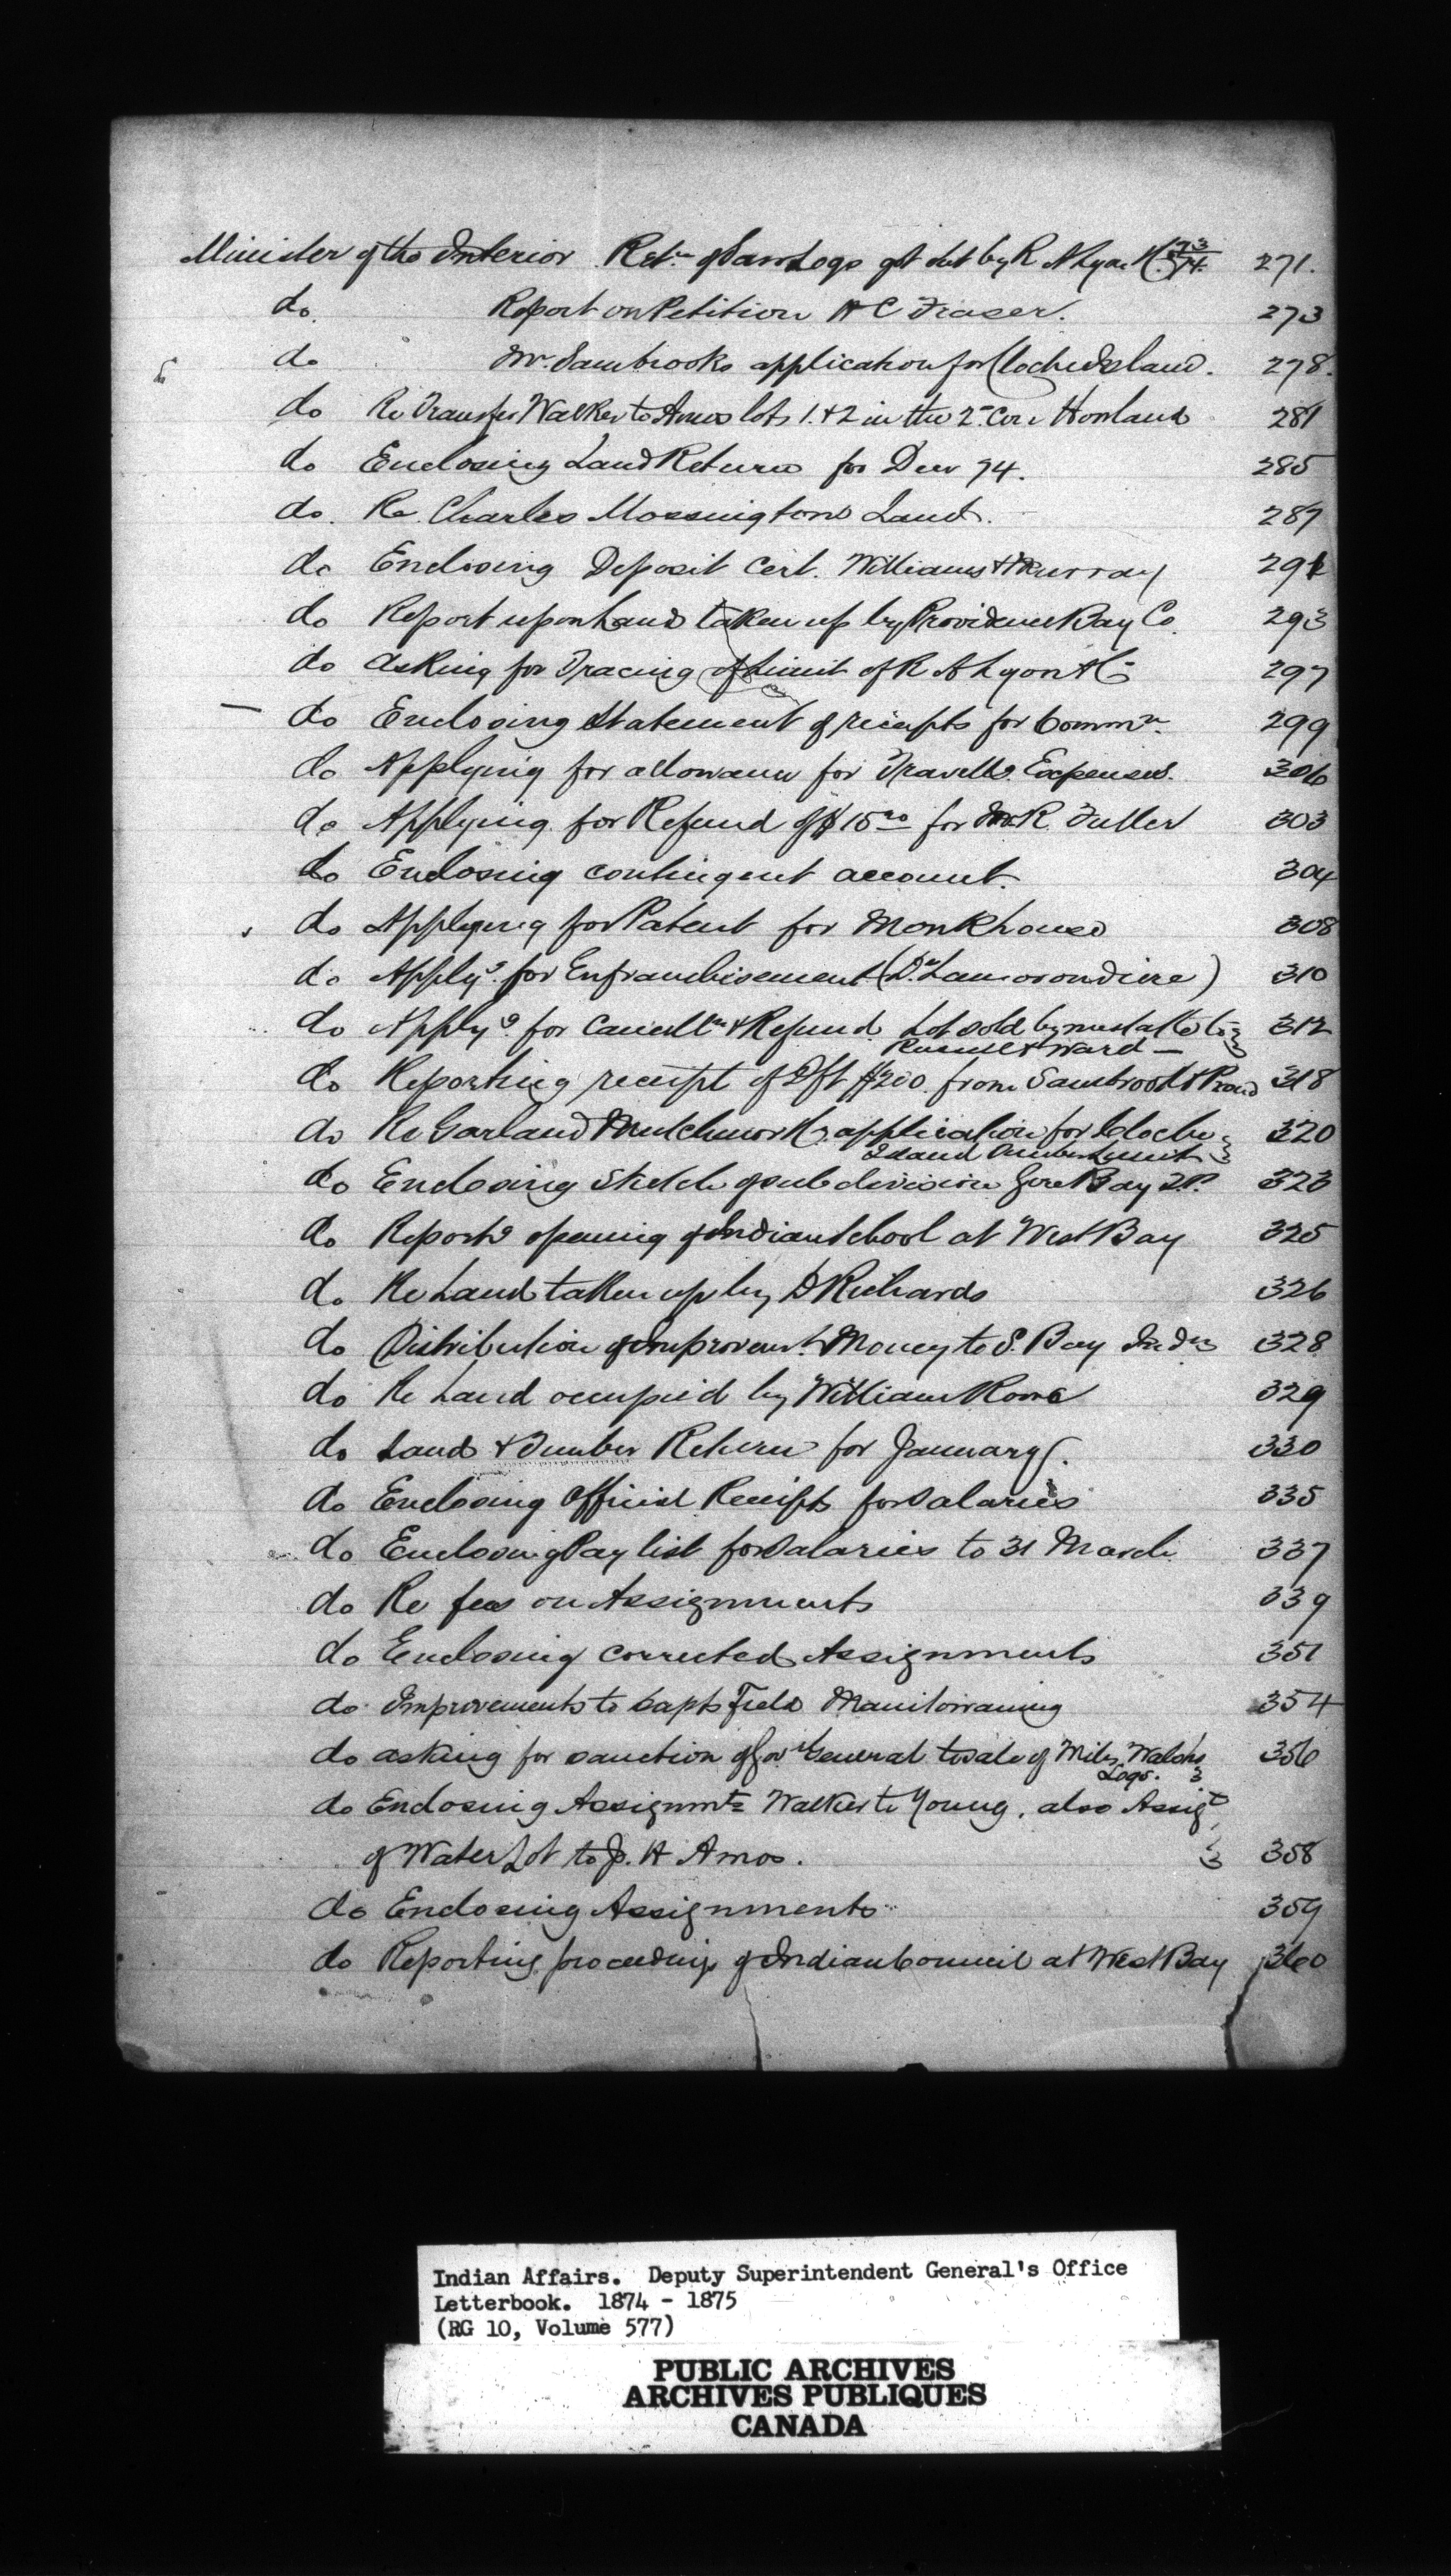 Minister of the Interior Retn of Saw Logs got out by R A Lyon 73/74. 271.
do. Report on Petition A C Fraser. 273
do Mr. Sambrooks application for Cloche Island. 278.
do Re Transfer Walker to Amos lots 1. & 2 in the 2d Con Howland 281
do Enclosing Land Returns for Decr 74. 285
do. Re Charles Mossingtons Land. 287
do Enclosing Deposit Cert. Williams & Murray 292
do Report upon Land taken up by Providence Bay Co. 293
do Asking for Tracing of Limit of R A Lyon & Co 297
do Enclosing Statement of receipts for Commn. 299
do Applying for allowance for Travellg. Expenses. 306
do Applying for Refund of $15.00 for R. Fuller 303
do Enclosing contingent account. 304
do Applying for Patent for Monkhouse 308
do Applyg. for Enfranchisement (De Lamorondiere) 310
do Applyg for Cancelln & Refund Lot sold by mistake to 312
Russell & Ward —
do Reporting receipt of Dft $200. from Sambrook & Proud 318
do Re Garland Mutchmor & Co application for Cloche 320
Island Timber Limit
do Enclosing Sketch of subdivision Gore Bay T.P. 323
do Reportg opening of Indian School at West Bay 325
do Re Land taken up by D Richards 326
do Distribution of Improvemt. Money to S. Bay Indns 328
do Re Land occupied by William Rowe 329
do Land & Timber Return for January. 330
do Enclosing Official Receipts for Salaries 335
do Enclosing Pay list for Salaries to 31 March 337
do Re fees on Assignments 339
do Enclosing corrected Assignments 351
do Improvements to Capts Field Manitowaning 354
do asking for sanction of Govr General to sale of Miles Walshs 356
Logs.
do Enclosing Assignmts Walker to Young, also Assigt
of Water Lot to J. H Amos. 358
do Enclosing Assignments 359
do Reporting proceedings of Indian Council at West Bay 360
Indian Affairs. Deputy Superintendent General's Office
Letterbook. 1874 - 1875
(RG 10, Volume 577)
PUBLIC ARCHIVES
ARCHIVES PUBLIQUES
CANADA